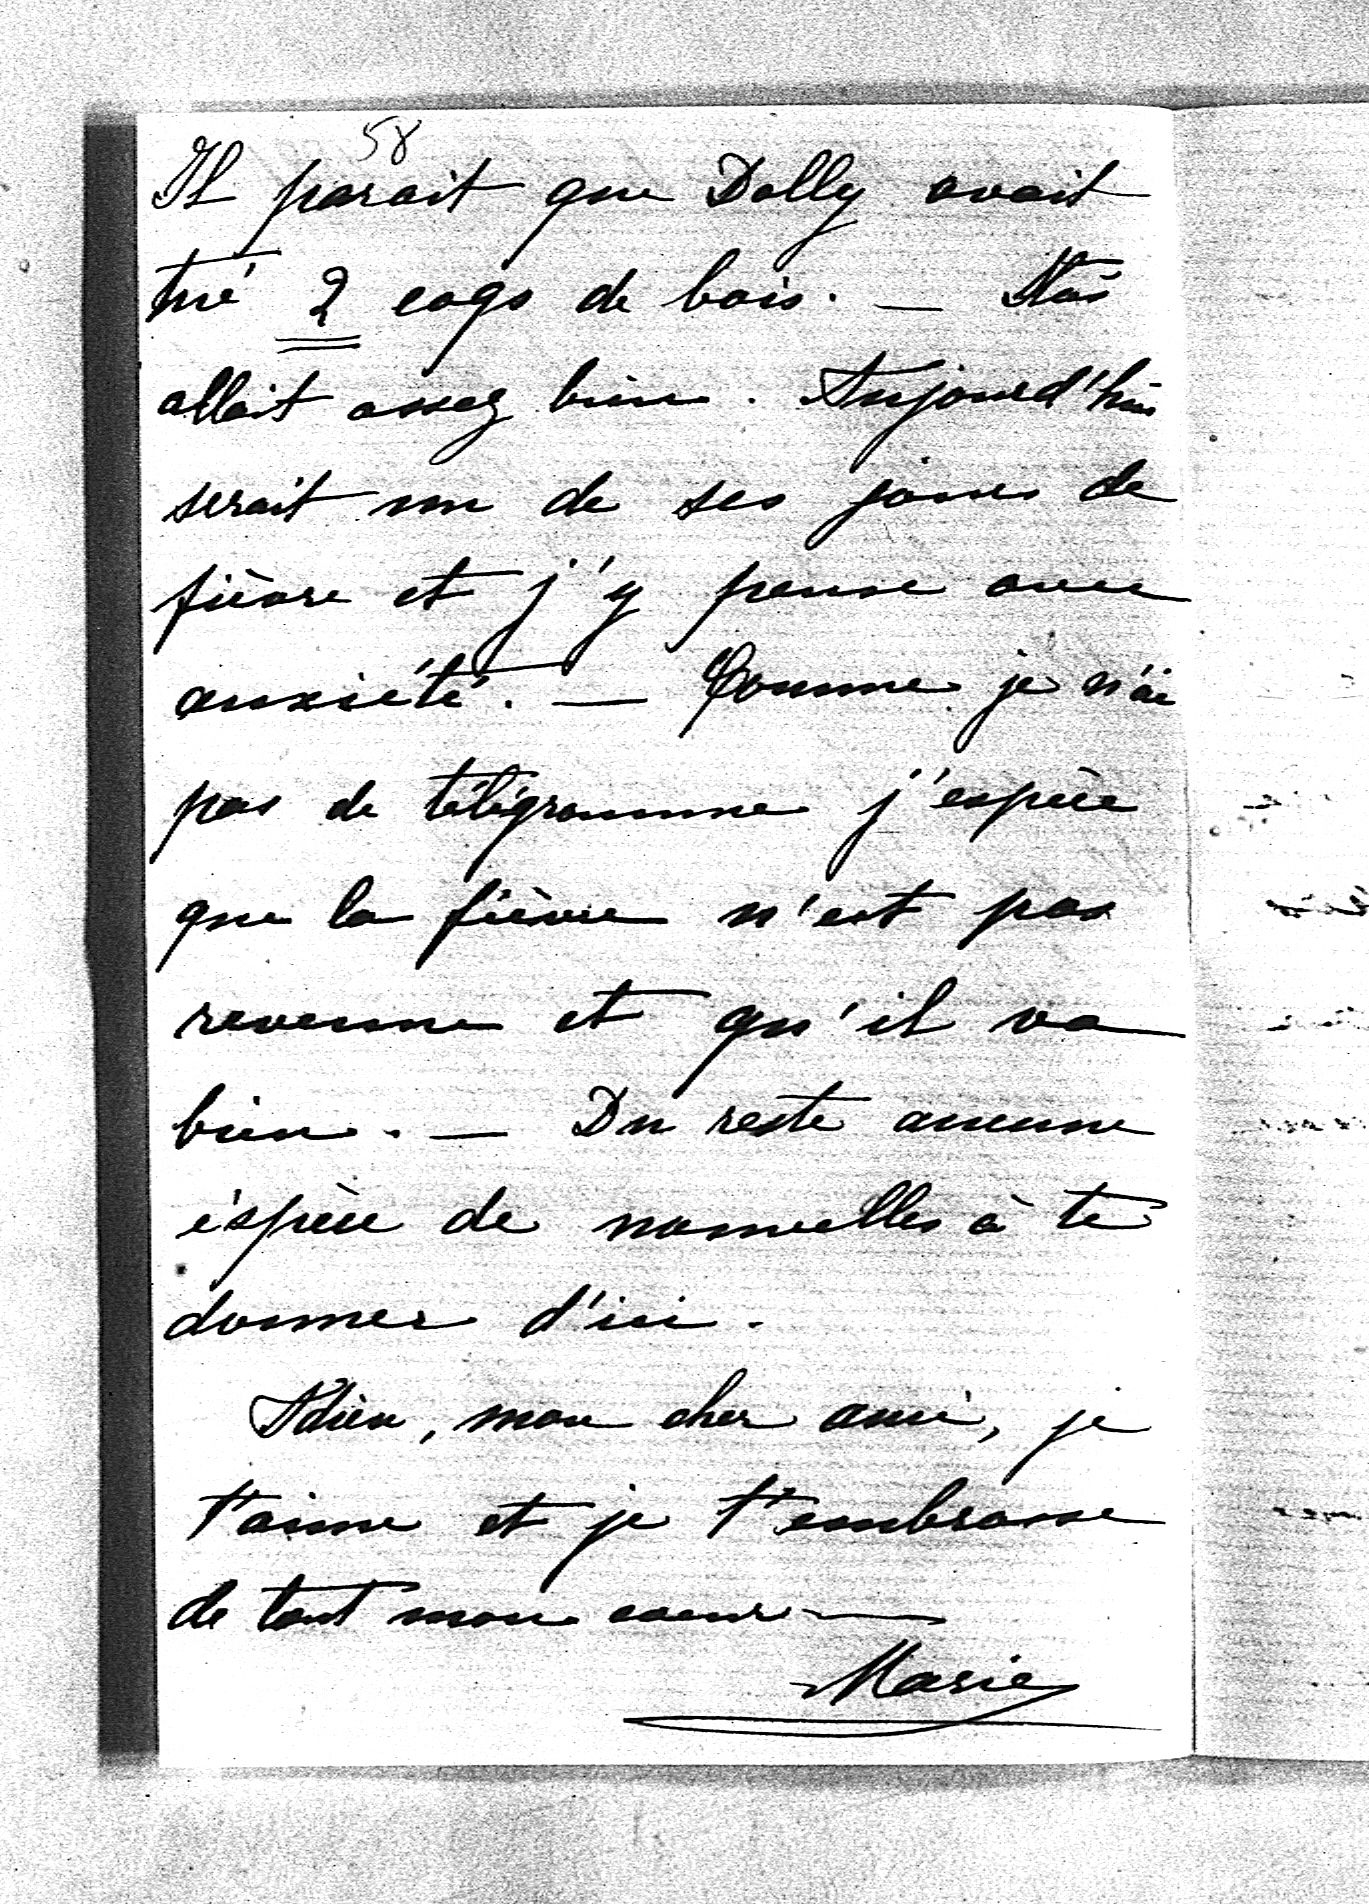 58
Il parait que Dolly avait
tué 2 coqs de bois. —
allait assez bien. Aujourd'hui
serait un de ses jours de
fièvre et j'y pense avec
anxiété. — Comme je n'ai
pas de télégramme j'espère
que la fièvre n'est pas
revenue et qu'il va
bien. — Du reste aucune
éspèce de nouvelles à te
donner d'ici.
Adieu, mon cher ami, je
t'aime et je t'embrasse
de tout mon coeur —
Marie